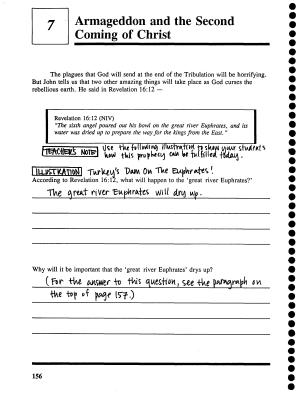 7
Armageddon and the Second
Coming of Christ
The plagues that God will send at the end of the Tribulation will be horrifying.
But John tells us that two other amazing things will take place as God curses the
rebellious earth. He said in Revelation 16:12 —
Revelation 16:12 (NIV)
"The sixth angel poured out his bowl on the great river Euphrates, and its
water was dried up to prepare the way for the kings from the East."
TEACHER'S NOTE! Use the following illustration to show your students
how this prophecy can be fulfilled today.
ILLUSTRATION Turkey's Dam On The Euphrates!
According to Revelation 16:12, what will happen to the 'great river Euphrates?'
The great river Euphrates will dry up.
Why will it be important that the 'great river Euphrates' drys up?
(For the answer to this question, see the paragraph on
the top of page 157.)
156